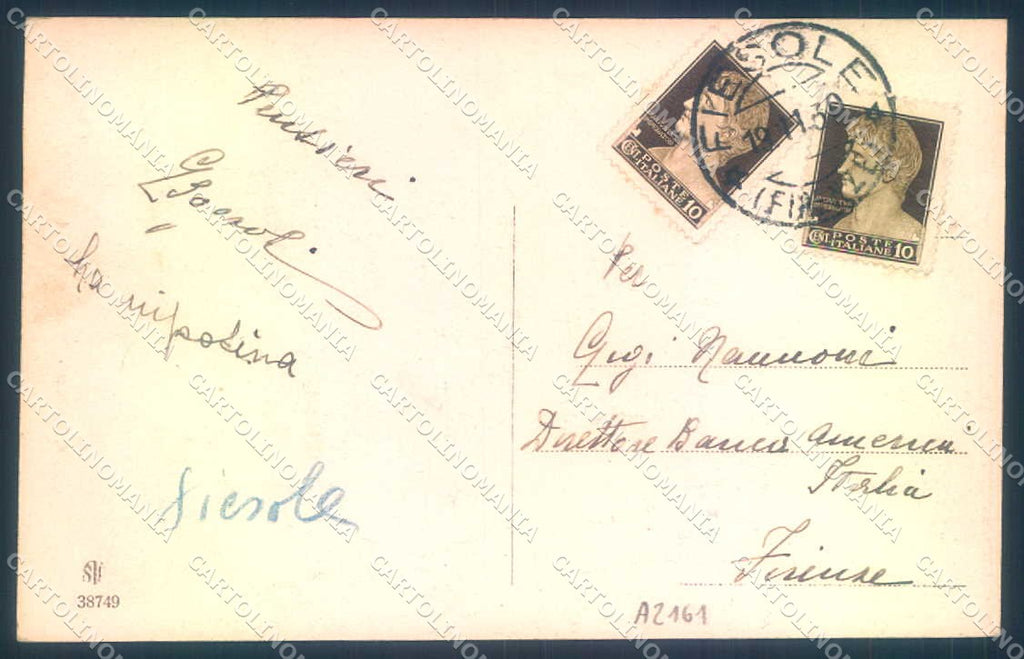 Pensieri
La nipotina
Fiesole
STF
38749
POSTE
ITALIANE 10
FIESOLE
(FIR
POSTE
ITALIANE 10
Per
Gigi Nannoni
Direttore Banca America
Italia
Firenze
A2161
CARTOLINOMANIA